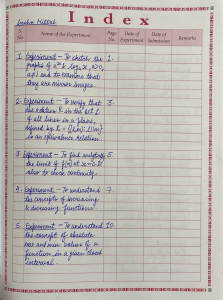 Sneha Mittal
Index
S. No.
Name of the Experiment
Page No.
Date of Experiment
Date of Submission
Remarks
1. Experiment - To sketch the 1.
graphs of
and to examine that
they are mirror images.
2. Experiment - To verify that 3.
the relation R in the set L
of all lines in a plane,
refined by
is an equivalence relation.
3. Experiment - To find analytically 5.
the limit of f(x) at x=c &
also to check continuity.
4. Experiment - To understand 7.
the concepts of increasing
& decreasing functions.
5. Experiment - To understand 10.
the concept of absolute
max and min values of a
function in a given closed
interval.